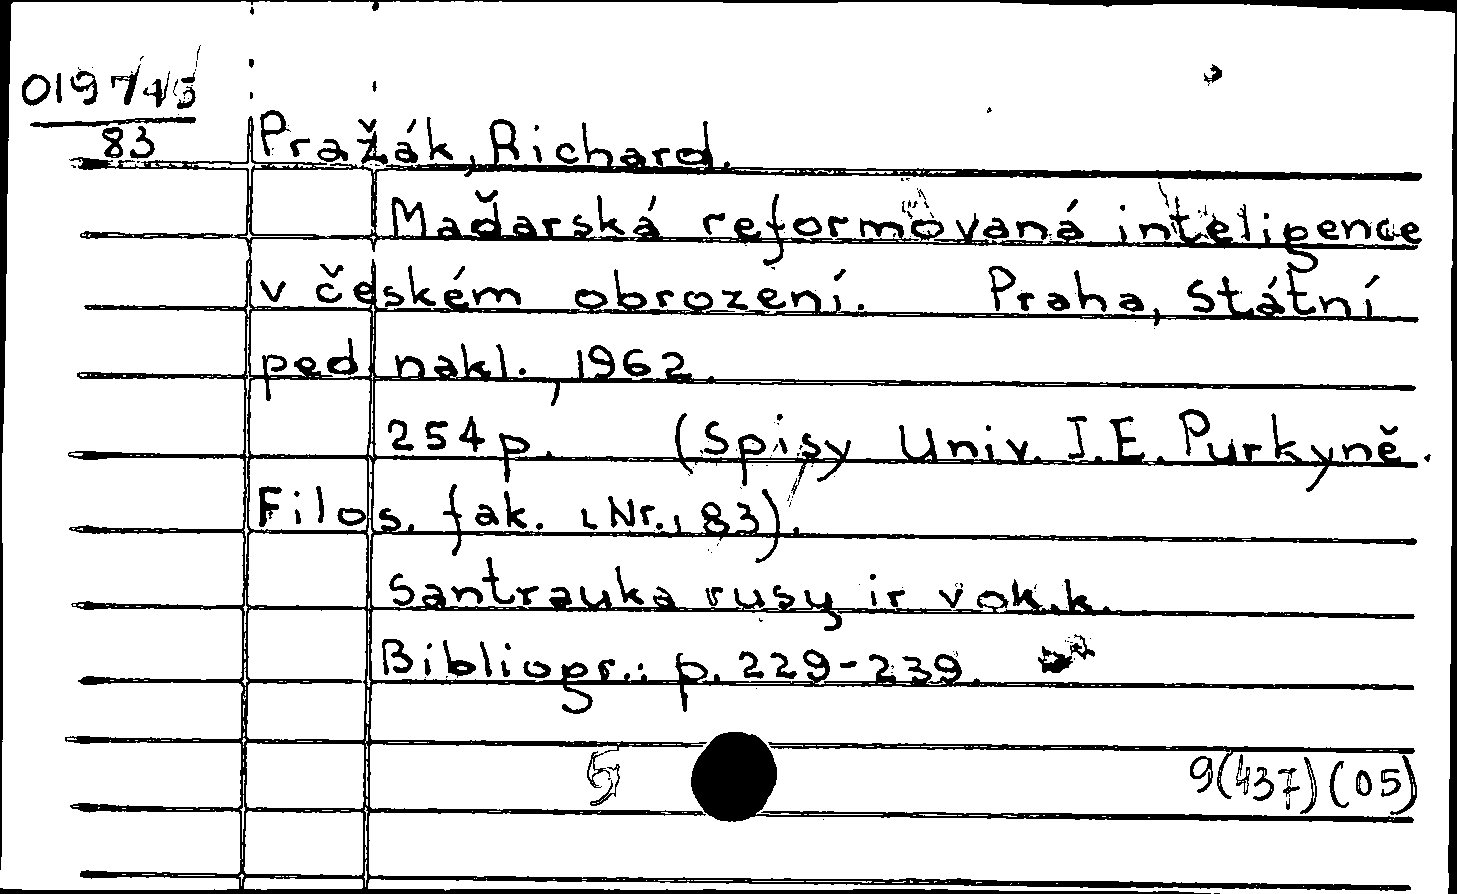 019745
83
Pražák, Richard.
Maďarská reformovaná inteligence
v českém obrození. Praha, Státní
ped. nakl., 1962.
254 p. (Spisy Univ. J. E. Purkyně.
Filos. fak. [Nr.] 83).
Santrauka rusų ir vok. k.
Bibliogr.: p. 229-239.
5 9(437)(05)